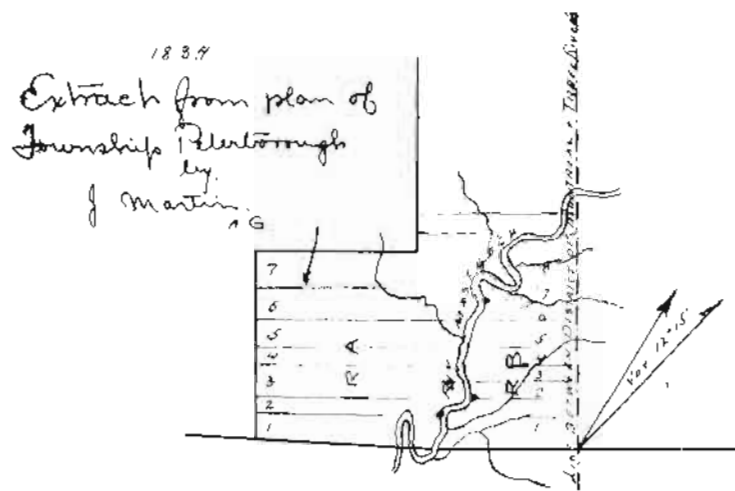 1834
Extract from plan of
Township Peterborough
by
J Martin
G
7
6
5
4
3
2
1
R A
R B
5
1
Line Between District of Montreal & Three Rivers
Var 12°15'